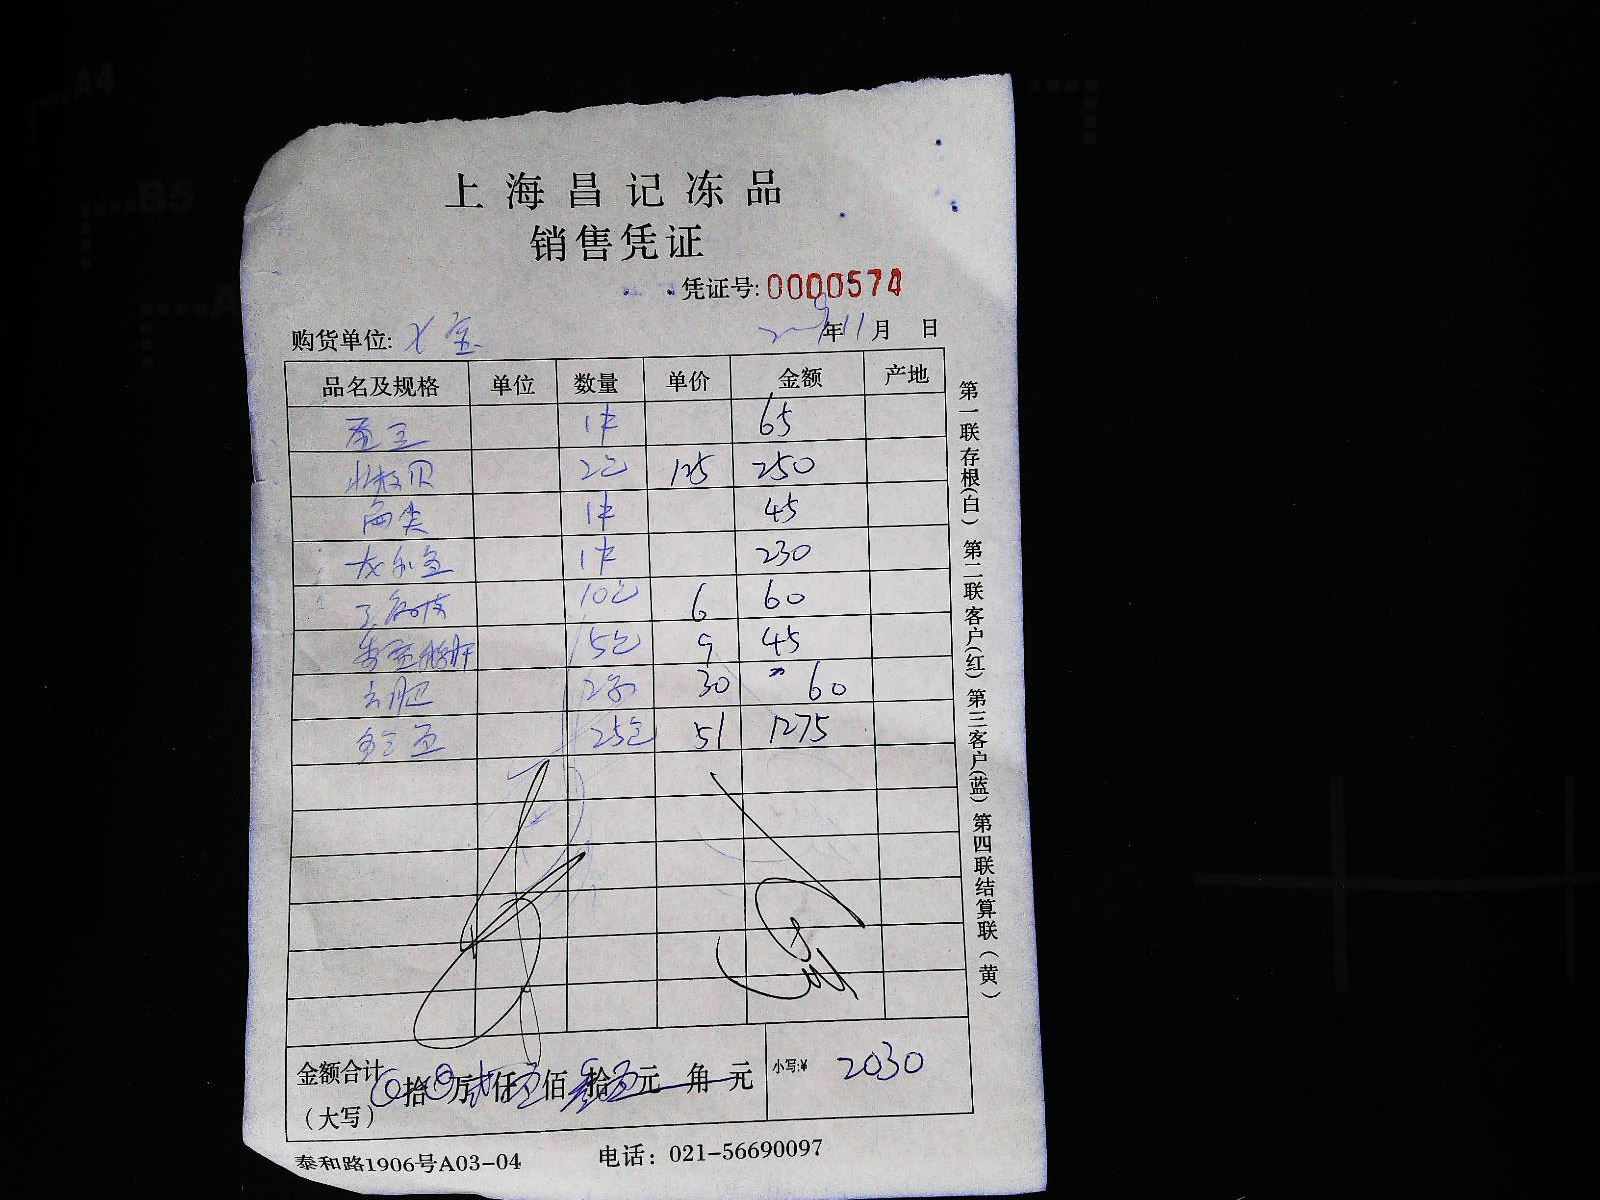 上海昌记冻品
销售凭证
凭证号:0000574
购货单位: 年11月 日
品名及规格 单位 数量 单价 金额 产地
1件 65
北极贝 2包 125 250
1件 45
龙利鱼 1件 230
10包 6 60
5包 9 45
30 60
25包 51 1275
金额合计 拾 万 仟 佰 拾 元 角 元 小写:¥ 2030
(大写)
泰和路1906号A03-04 电话: 021-56690097
第一联存根(白) 第二联客户(红) 第三客户(蓝) 第四联结算联(黄)